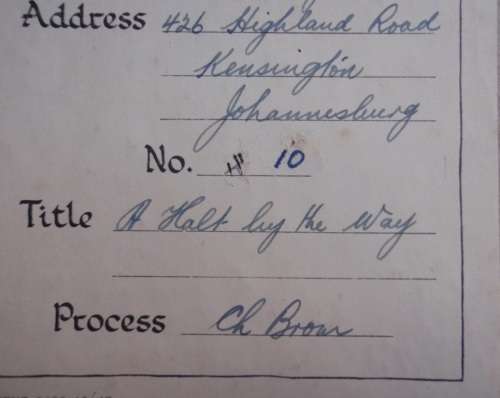 Address 426 Highland Road
Kensington
Johannesburg
No. H 10
Title A Halt by the Way
Process Ch Brom